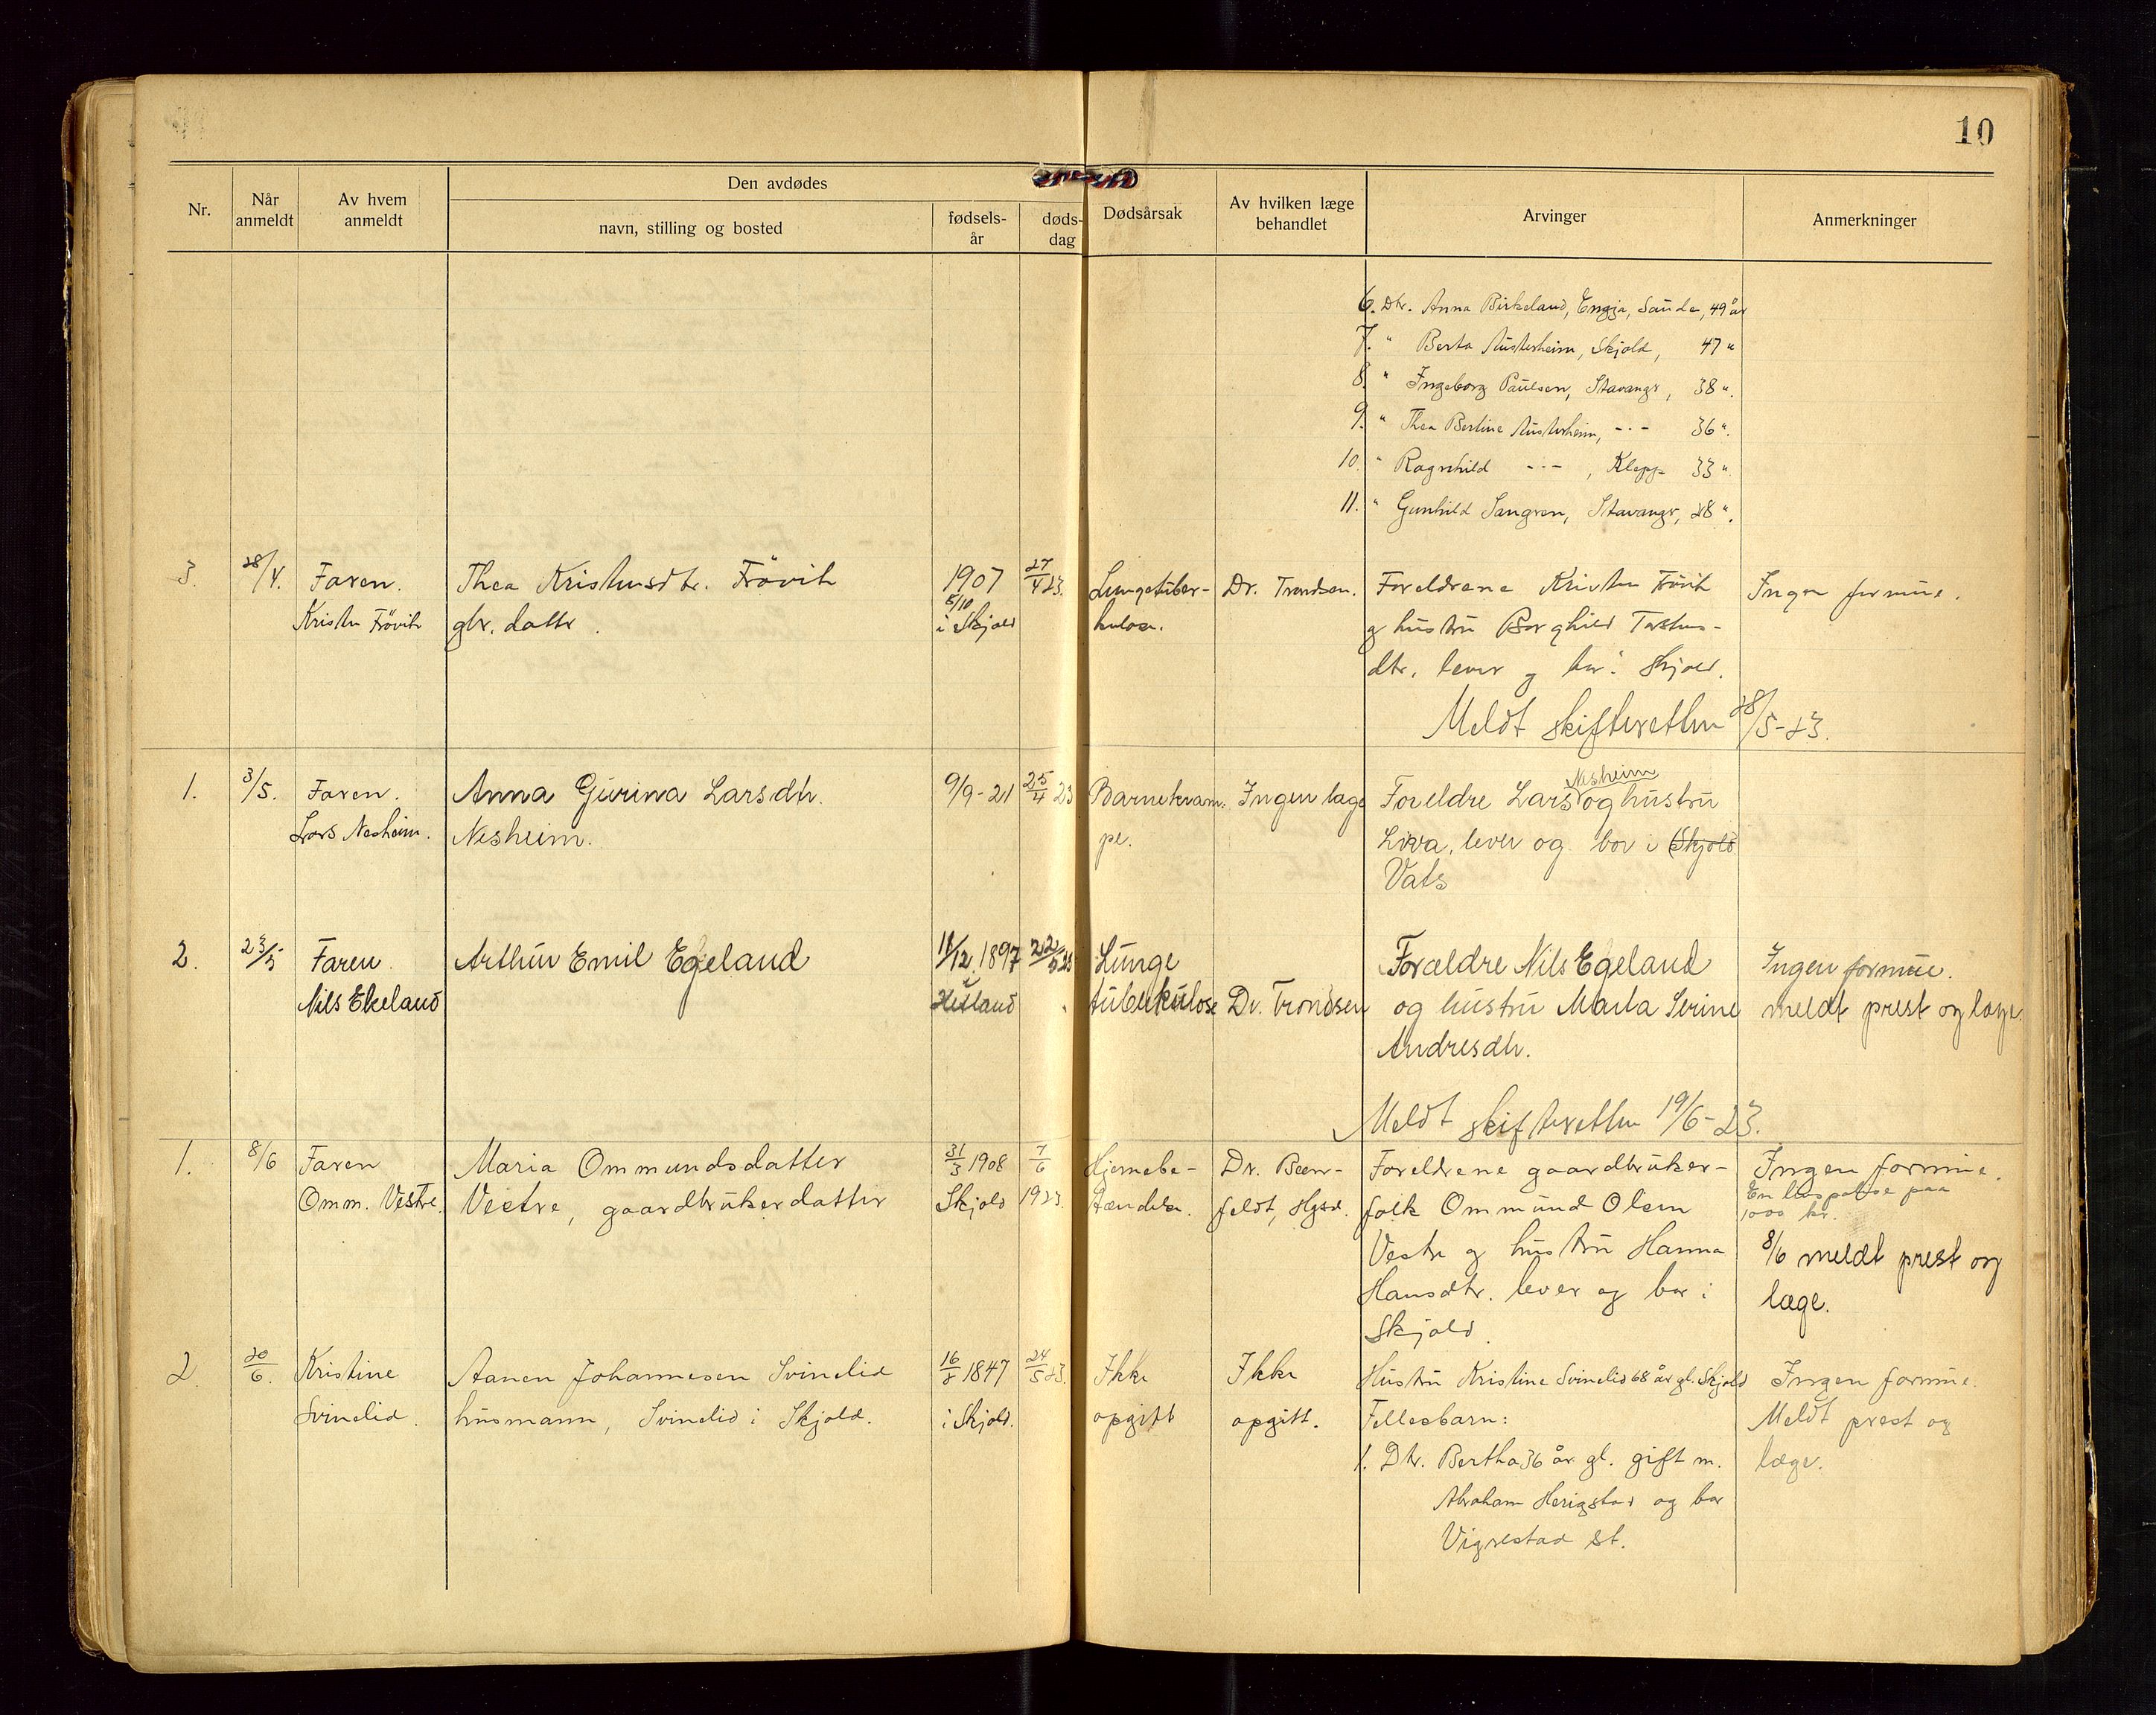 10
Nr.
Når anmeldt
Av hvem anmeldt
Den avdødes
navn, stilling og bosted
fødsels-år
døds-dag
Dødsårsak
Av hvilken læge behandlet
Arvinger
Anmerkninger
6. Dtr. Anna Birkeland, Engja, Saude, 49 år
7. " Berta Austerheim, Skjold, 47 "
8. " Ingeborg Paulsen, Stavangr, 38 ".
9. " Thea Bertine Austerheim, -"- 36 ".
10. " Ragnhild -"- , Klepp 33 "
11. " Gunhild Sangren, Stavangr, 28 ".
3. 28/4. Faren. Thea Kristensdtr. Frövik 1907 27/4 23. Lungetuber- Dr. Trondsen. Foreldrene Kristen Frövik Ingen formue.
Kristen Frövik gbr. datter. 5/10 i Skjold kulose. og hustru Borghild Torstens-
dtr. lever og bor i Skjold.
Meldt skifteretten 28/5-23.
1. 3/5. Faren. Anna Gurina Larsdtr. 9/9-21 25/4 23 Barnekram- Ingen læge Foreldre Lars Nesheim og hustru
Lars Nesheim. Nesheim. pe. Liva, lever og bor i Skjold
Vats
2. 23/5 Faren Arthur Emil Egeland 11/12 1897 22/5 23 Lunge Forældre Nils Egeland Ingen formue.
Nils Ekeland i Hetland tuberkulose Dr. Trondsen og hustru Marta Serine meldt prest og læge.
Andresdtr.
Meldt skifteretten 19/6-23.
1. 8/6 Faren Maria Ommundsdatter 31/3 1908 7/6 Hjernebe- Dr. Been- Foreldrene gaardbruker- Ingen formue.
Omm. Vestre. Vestre, gaardbrukerdatter Skjold 1923. tændelse. feldt, Hgsd. folk Ommund Olsen En livspolise paa
1000 kr.
Vestre og hustru Hanna 8/6 meldt prest og
Hansdtr. lever og bor i læge.
Skjold.
2. 20/6. Kristine Aanen Johannesen Svinelid 16/8 1847 24/5 23. Ikke Ikke Hustru Kristine Svinelid 68 år gl. Skjold Ingen formue.
Svinelid. husmann, Svinelid i Skjold. i Skjold. opgitt opgitt. Fellesbarn: Meldt prest og
1. Dtr. Bertha 36 år gl. gift m. læge.
Abraham Herigstad og bor
Vigrestad st.